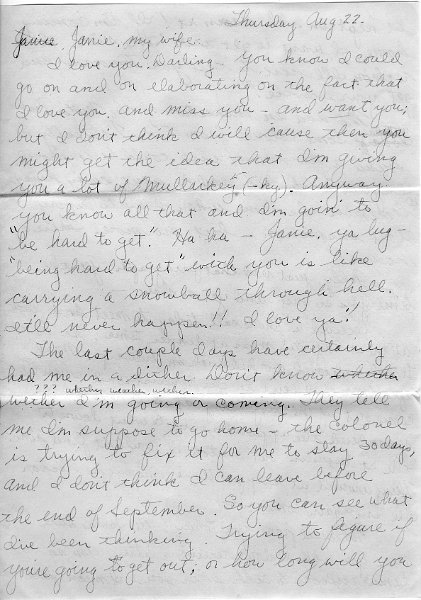 Thursday, Aug 22.
Janie, Janie, my wife.
I love you, Darling. You know I could
go on and on elaborating on the fact that
I love you, and miss you - and want you;
but I don't think I will 'cause then you
might get the idea that I'm giving
you a lot of "Mullarkey" (-ky). Anyway
you know all that and I'm goin' to
"be hard to get." Ha ha - Janie, ya lug -
"being hard to get" with you is like
carrying a snowball through hell.
It'll never happen!! I love ya!
The last couple days have certainly
had me in a dither. Don't know whether
??? whether, weather, wether.
wether I'm going or coming. They tell
me I'm suppose to go home - the colonel
is trying to fix it for me to stay 30 days,
and I don't think I can leave before
the end of September. So you can see what
I've been thinking. Trying to figure if
you're going to get out; or how long will you